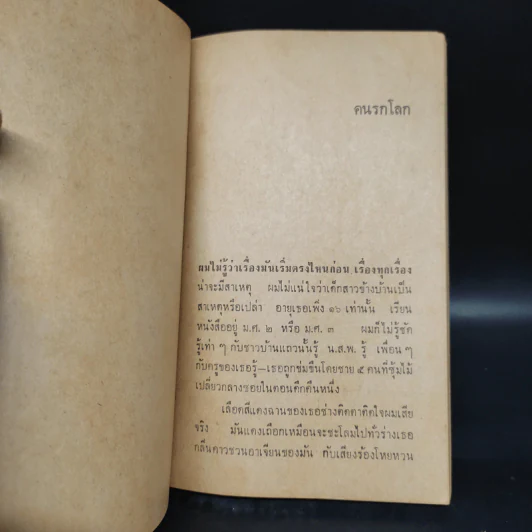 คนรกโลก
ผมไม่รู้ว่าเรื่องมันเริ่มตรงไหนก่อน เรื่องทุกเรื่อง
น่าจะมีสาเหตุ ผมไม่แน่ใจว่าเด็กสาวข้างบ้านเป็น
สาเหตุหรือเปล่า อายุเธอเพิ่ง ๑๖ เท่านั้น เรียน
หนังสืออยู่ ม.ศ. ๒ หรือ ม.ศ. ๓ ผมก็ไม่รู้ชัด
รู้เท่า ๆ กับชาวบ้านแถวนั้นรู้ น.ส.พ. รู้ เพื่อน ๆ
กับครูของเธอรู้—เธอถูกข่มขืนโดยชาย ๕ คนที่ซุ้มไม้
เปลี่ยวกลางซอยในตอนดึกคืนหนึ่ง
เลือดสีแดงฉานของเธอช่างติดตาติดใจผมเสีย
จริง มันแดงเถือกเหมือนจะชะโลมไปทั่วร่างเธอ
กลิ่นคาวชวนอาเจียนของมัน กับเสียงร้องโหยหวน